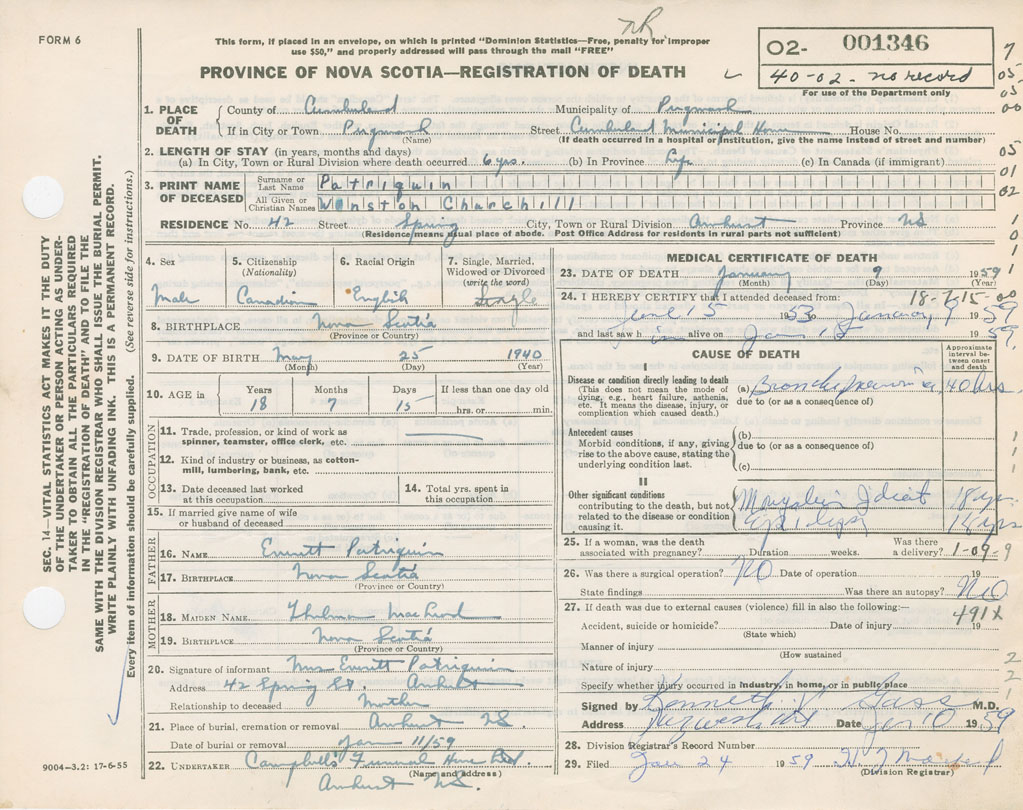 FORM 6
This form, if placed in an envelope, on which is printed "Dominion Statistics—Free, penalty for improper
use $50," and properly addressed will pass through the mail "FREE"
NR
02- 001346
40-02- no record
For use of the Department only
PROVINCE OF NOVA SCOTIA—REGISTRATION OF DEATH
1. PLACE OF DEATH
County of Cumberland Municipality of Pugwash
If in City or Town Pugwash Street Cumberland Municipal Home House No.
(Name) (If death occurred in a hospital or institution, give the name instead of street and number)
2. LENGTH OF STAY (in years, months and days)
(a) In City, Town or Rural Division where death occurred 6 yrs. (b) In Province Life (c) In Canada (if immigrant)
3. PRINT NAME OF DECEASED
Surname or Last Name Patriquin
All Given or Christian Names Winston Churchill
RESIDENCE No. 42 Street Spring City, Town or Rural Division Amherst Province NS
(Residence means usual place of abode. Post Office Address for residents in rural parts not sufficient)
4. Sex Male
5. Citizenship (Nationality) Canadian
6. Racial Origin English
7. Single, Married, Widowed or Divorced (write the word) Single
8. BIRTHPLACE Nova Scotia
(Province or Country)
9. DATE OF BIRTH May 25 1940
(Month) (Day) (Year)
10. AGE in Years 18 Months 7 Days 15 If less than one day old hrs. or min.
OCCUPATION
11. Trade, profession, or kind of work as spinner, teamster, office clerk, etc.
12. Kind of industry or business, as cotton-mill, lumbering, bank, etc.
13. Date deceased last worked at this occupation
14. Total yrs. spent in this occupation
15. If married give name of wife or husband of deceased
FATHER
16. NAME Everitt Patriquin
17. BIRTHPLACE Nova Scotia
(Province or Country)
MOTHER
18. MAIDEN NAME
19. BIRTHPLACE Nova Scotia
(Province or Country)
20. Signature of informant Mrs Everitt Patriquin
Address 42 Spring St. Amherst
Relationship to deceased Mother
21. Place of burial, cremation or removal Amherst NS.
Date of burial or removal Jan 11/59
22. UNDERTAKER Campbell's Funeral Home Ltd
(Name and address)
Amherst NS.
MEDICAL CERTIFICATE OF DEATH
23. DATE OF DEATH January 9 1959
(Month) (Day) (Year)
24. I HEREBY CERTIFY that I attended deceased from: 18-7-15-00
June 15 1953 to January 9 1959
and last saw him alive on Jan 1959
CAUSE OF DEATH
Approximate interval between onset and death
I
Disease or condition directly leading to death
(This does not mean the mode of dying, e.g., heart failure, asthenia, etc. It means the disease, injury, or complication which caused death.)
(a) Bronchopneumonia 40 hrs
due to (or as a consequence of)
Antecedent causes
Morbid conditions, if any, giving rise to the above cause, stating the underlying condition last.
(b)
due to (or as a consequence of)
(c)
II
Other significant conditions
contributing to the death, but not related to the disease or condition causing it.
Mongolian Idiot 18 yrs
Epilepsy yrs
25. If a woman, was the death associated with pregnancy? Duration weeks. Was there a delivery? 1-09-9
26. Was there a surgical operation? NO Date of operation 19
State findings Was there an autopsy? NO
27. If death was due to external causes (violence) fill in also the following:—
491X
Accident, suicide or homicide? Date of injury 19
(State which)
Manner of injury
(How sustained)
Nature of injury
Specify whether injury occurred in industry, in home, or in public place
Signed by Kenneth Gass M.D.
Address Date Jan 10 1959
28. Division Registrar's Record Number
29. Filed Jan 24 1959
(Division Registrar)
SEC. 14—VITAL STATISTICS ACT MAKES IT THE DUTY
OF THE UNDERTAKER OR PERSON ACTING AS UNDER-
TAKER TO OBTAIN ALL THE PARTICULARS REQUIRED
IN THE "REGISTRATION OF DEATH" AND TO FILE THE
SAME WITH THE DIVISION REGISTRAR WHO SHALL ISSUE THE BURIAL PERMIT.
WRITE PLAINLY WITH UNFADING INK. THIS IS A PERMANENT RECORD.
Every item of information should be carefully supplied. (See reverse side for instructions.)
9004—3.2: 17-6-55
7
05
05
00
05
01
02
1
0
1
1
1
1
1
2
2
1